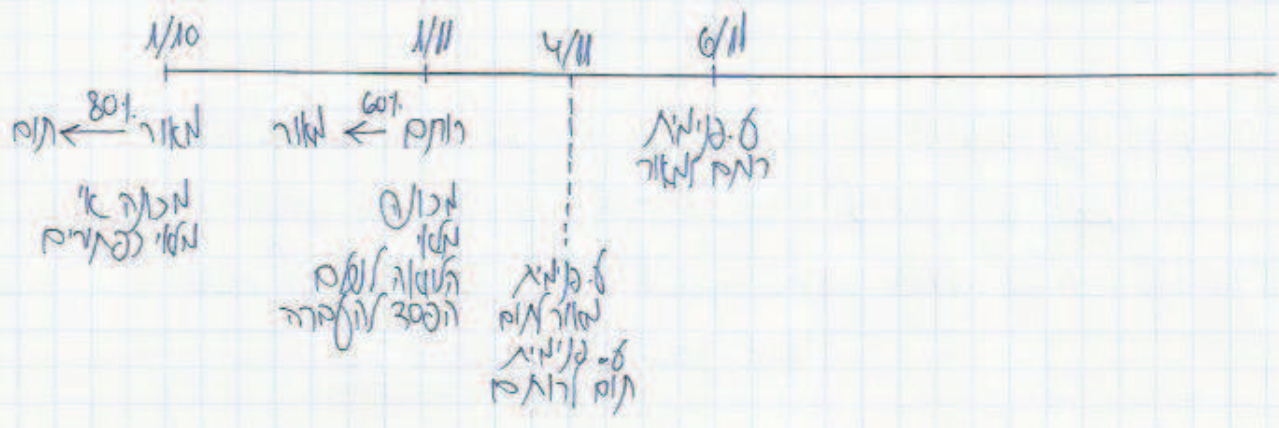 1/10
1/11
4/11
6/11
מאור ← 80% תום
מכונה א'
מלאי כפתורים
רותם ← 60% מאור
מלאי
הלוואה
הפסד להעברה
ע. פנימית
מאור לתום
ע. פנימית
תום לרותם
ע. פנימית
רתם למאור